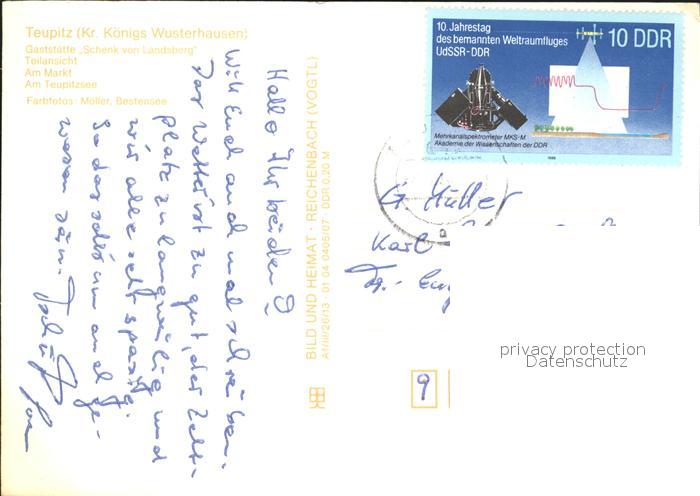 Teupitz (Kr. Königs Wusterhausen)
Gaststätte „Schenk von Landsberg"
Teilansicht
Am Markt
Am Teupitzsee
Farbfotos: Möller, Bestensee
Hallo Ihr beiden!
Will Euch auch mal schreiben.
Das Wetter ist zu gut, der Zelt-
platz zu langweilig und
wir alle sehr spaßig.
So das soll's nun auch ge-
wesen sein. Tschüß
BILD UND HEIMAT · REICHENBACH (VOGTL)
A1/III/26/13 01 04 0405/07 DDR 0,20 M
10. Jahrestag
des bemannten Weltraumfluges
UdSSR-DDR
10 DDR
Mehrkanalspektrometer MKS-M
Akademie der Wissenschaften der DDR
1988
G. Müller
Karl
9
privacy protection
Datenschutz